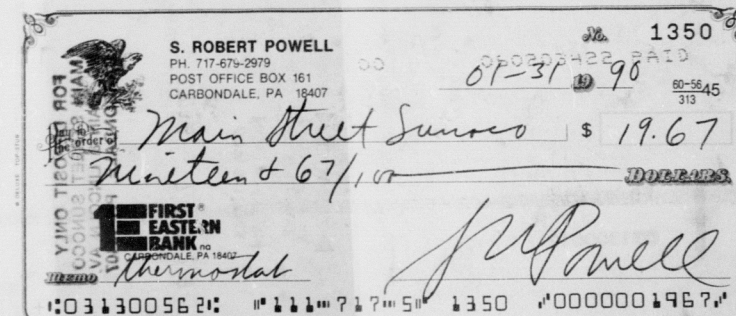 S. ROBERT POWELL
PH. 717-679-2979
POST OFFICE BOX 161
CARBONDALE, PA 18407
No. 1350
060203422 PAID
01-31 19 90
60-56 45
313
order of Main Street Sunoco $ 19.67
Nineteen & 67/100 DOLLARS
FIRST
EASTERN
BANK na
CARBONDALE, PA 18407
MEMO thermostat
S R Powell
⑆031300562⑆ ⑈111⑉717⑉5⑈ 1350 ⑈0000001967⑈
FOR DEPOSIT ONLY
MAIN STREET SUNOCO